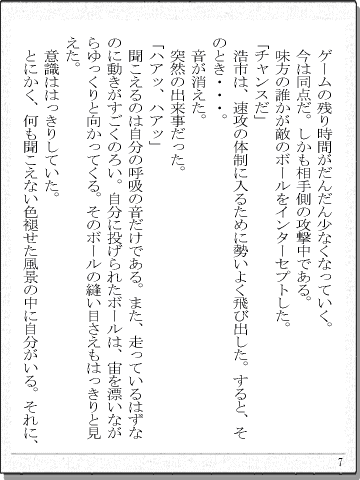 ゲームの残り時間がだんだん少なくなっていく。
今は同点だ。しかも相手側の攻撃中である。
味方の誰かが敵のボールをインターセプトした。
「チャンスだ」
浩市は、速攻の体制に入るために勢いよく飛び出した。すると、そ
のとき・・・。
音が消えた。
突然の出来事だった。
「ハアッ、ハアッ」
聞こえるのは自分の呼吸の音だけである。また、走っているはずな
のに動きがすごくのろい。自分に投げられたボールは、宙を漂いなが
らゆっくりと向かってくる。そのボールの縫い目さえもはっきりと見
えた。
意識ははっきりしていた。
とにかく、何も聞こえない色褪せた風景の中に自分がいる。それに、
7